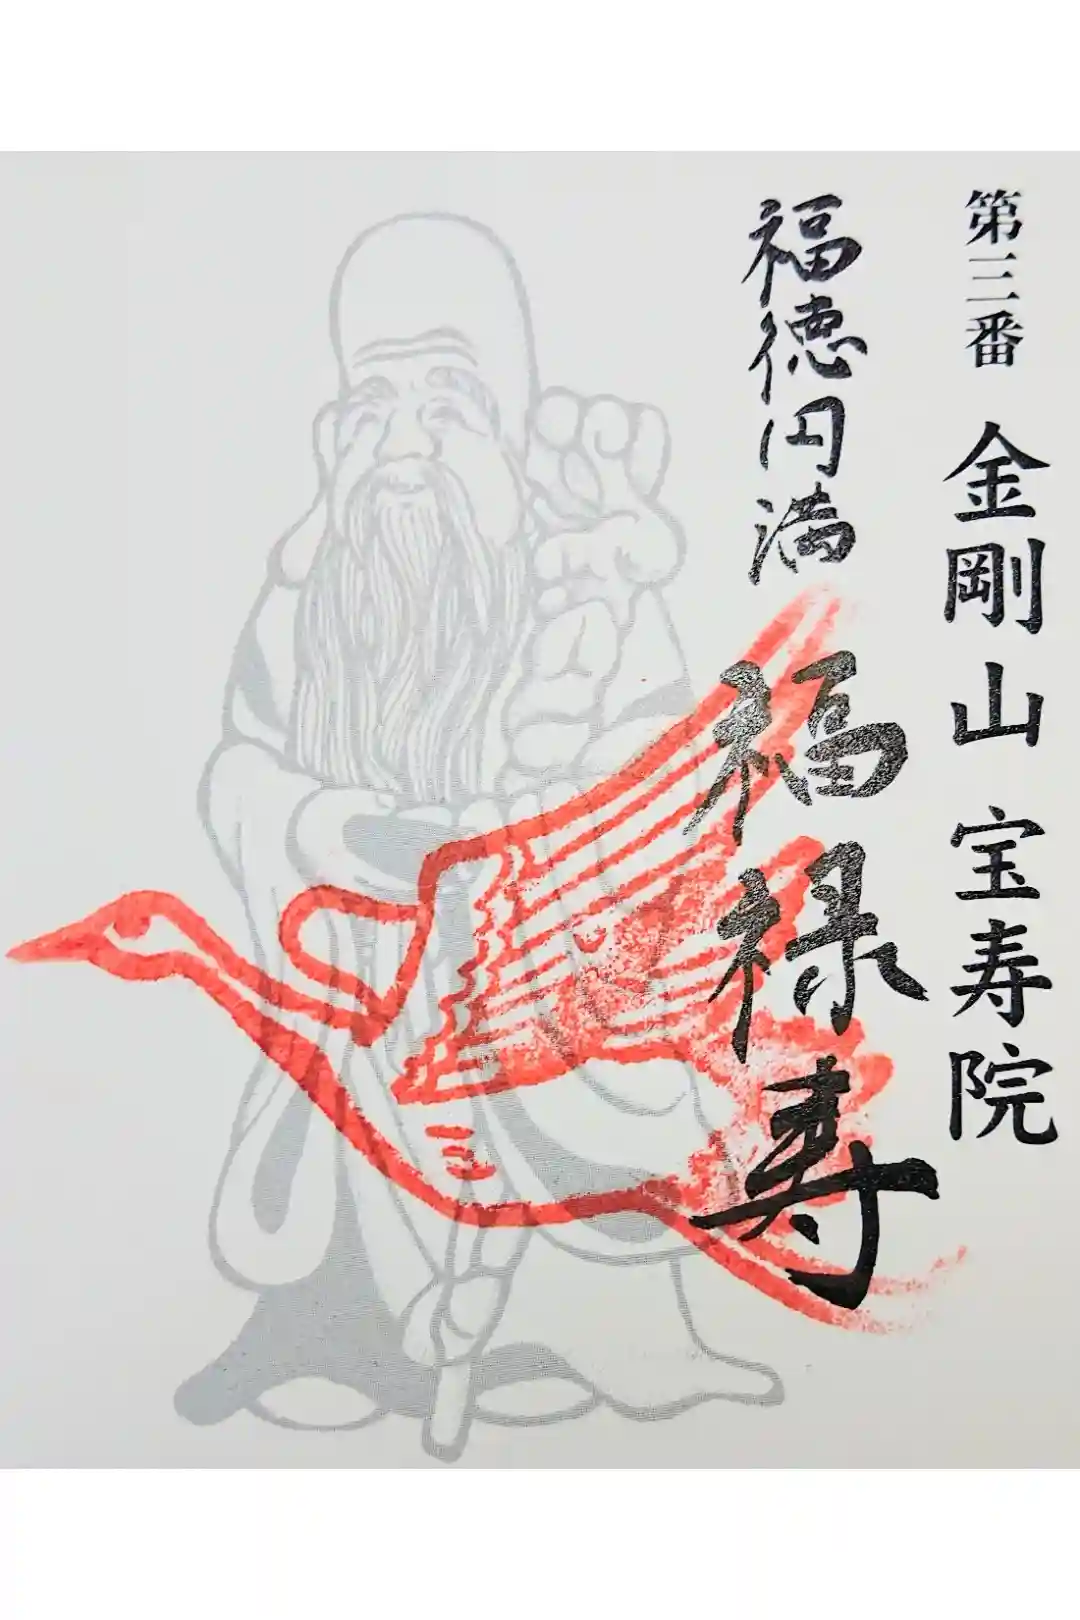 第三番 金剛山 宝寿院
福徳円満
福禄寿